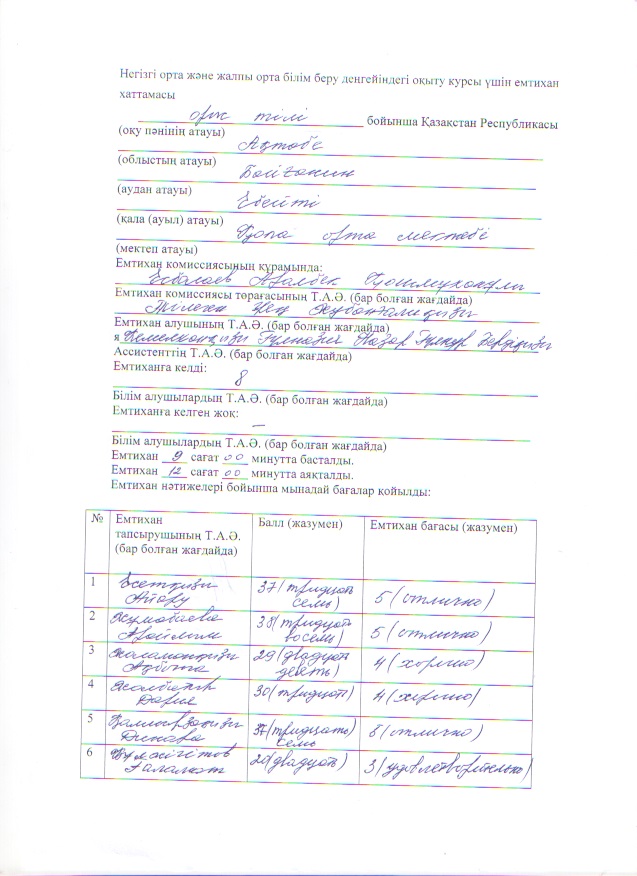 Негізгі орта және жалпы орта білім беру деңгейіндегі оқыту курсы үшін емтихан
хаттамасы
орыс тілі бойынша Қазақстан Республикасы
(оқу пәнінің атауы)
Ақтөбе
(облыстың атауы)
Байғанин
(аудан атауы)
Ебейті
(қала (ауыл) атауы)
Қопа орта мектебі
(мектеп атауы)
Емтихан комиссиясының құрамында:
Емтихан комиссиясы торағасының Т.А.Ә. (бар болған жағдайда)
Емтихан алушының Т.А.Ә. (бар болған жағдайда)
я Гүлназия Назар Гүлнұр
Ассистенттің Т.А.Ә. (бар болған жағдайда)
Емтиханға келді:
8
Білім алушылардың Т.А.Ә. (бар болған жағдайда)
Емтиханға келген жоқ:
–
Білім алушылардың Т.А.Ә. (бар болған жағдайда)
Емтихан 9 сағат 00 минутта басталды.
Емтихан 12 сағат 00 минутта аяқталды.
Емтихан нәтижелері бойынша мынадай бағалар қойылды:
№ Емтихан тапсырушының Т.А.Ә. (бар болған жағдайда) Балл (жазумен) Емтихан бағасы (жазумен)
1 Есетқызы Айару 37 (тридцать семь) 5 (отлично)
2 Арайлым 38 (тридцать восемь) 5 (отлично)
3 Ақбота 29 (двадцать девять) 4 (хорошо)
4 Дария 30 (тридцать) 4 (хорошо)
5 Динара 37 (тридцать) семь 5 (отлично)
6 Ғаламат 20 (двадцать) 3 (удовлетворительно)